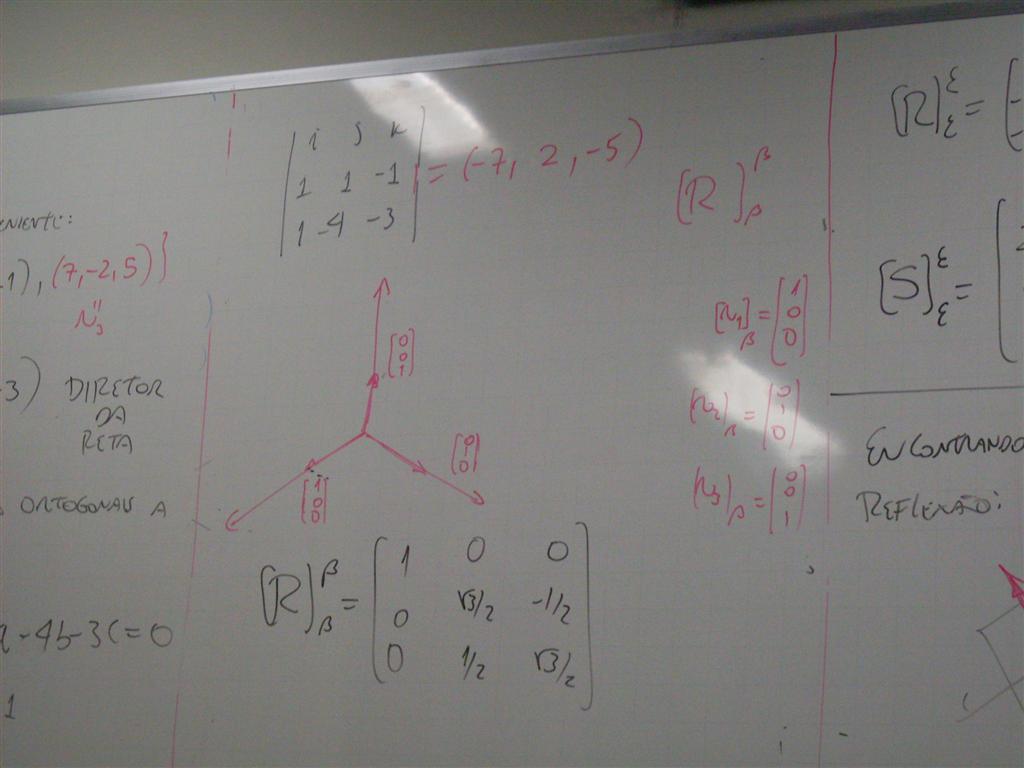 ENIENTE:
-1), (7,-2,5)}
"
N3
-3) DIRETOR
DA
RETA
ORTOGONAIS A
a-4b-3c=0
1
| i j k |
| 1 1 -1 | = (-7, 2, -5)
| 1 -4 -3 |
[0
0
1]
[0
1
0]
[1
0
0]
[R]β β = [1 0 0
0 √3/2 -1/2
0 1/2 √3/2]
[R]β β
[N1]β = [1
0
0]
[N2]β = [0
1
0]
[N3]β = [0
0
1]
[R]ε ε = [
[S]ε ε = [
ENCONTRANDO
REFLEXÃO: